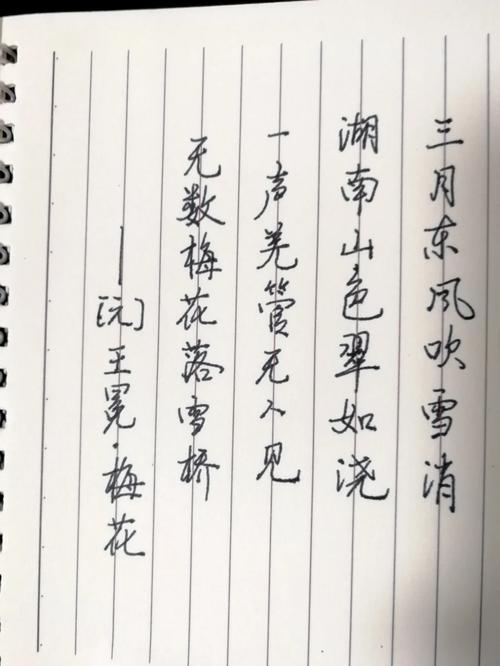 三月东风吹雪消
湖南山色翠如浇
一声羌管无人见
无数梅花落雪桥
——[元]王冕·梅花